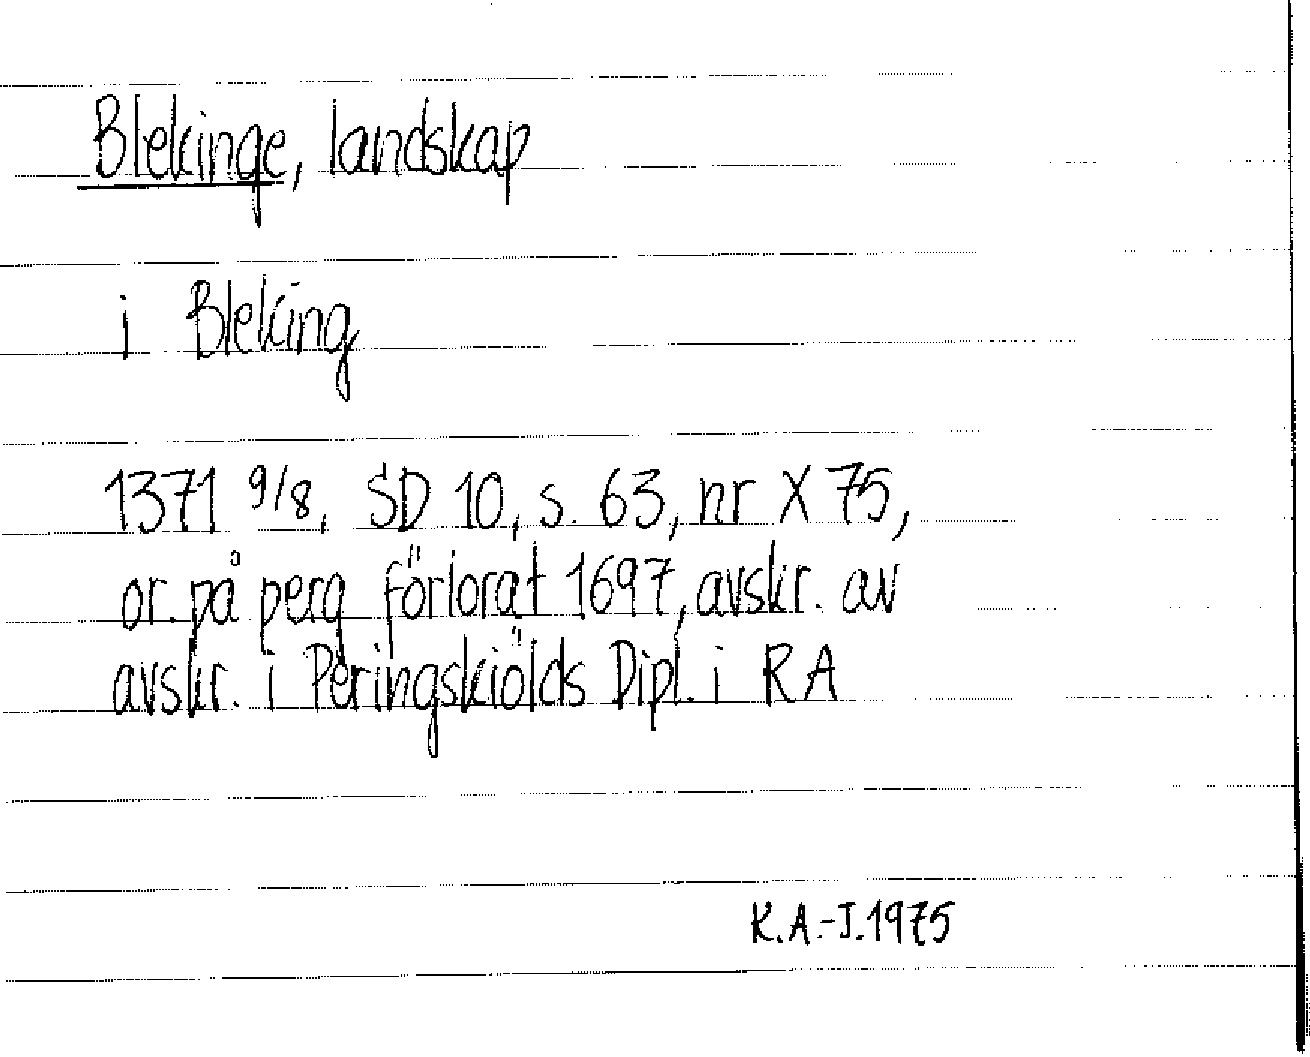 Blekinge, landskap
i Bleking
1371 9/8, SD 10, s. 63, nr X 75,
or. på perg förlorat 1697, avskr. av
avskr. i Peringskiölds Dipl. i RA
K.A.-J. 1975